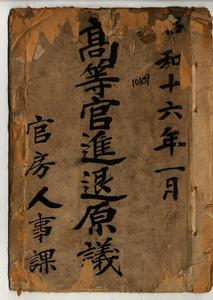 昭和十六年一月
10109
高等官進退原議
官房人事課